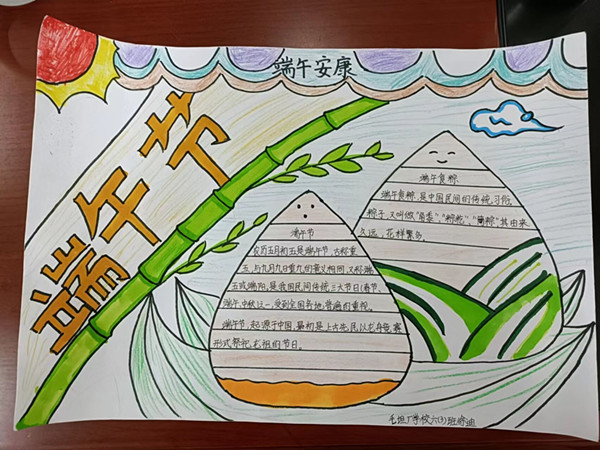 端午安康
端午节
端午食粽
端午食粽,是中国民间的传统习俗,
粽子,又叫做"角黍","粽粑","简粽",其由来
久远,花样繁多
端午节
农历五月初五是端午节,古称重
五,与九月九日重九的意义相同,又称端
五或端阳,是我国民间传统三大节日(春节,
端午,中秋)之一,受到全国各地普遍的重视。
端午节,起源于中国,最初是上古先民以龙舟竞赛
形式祭祀龙祖的节日。
六(3)班